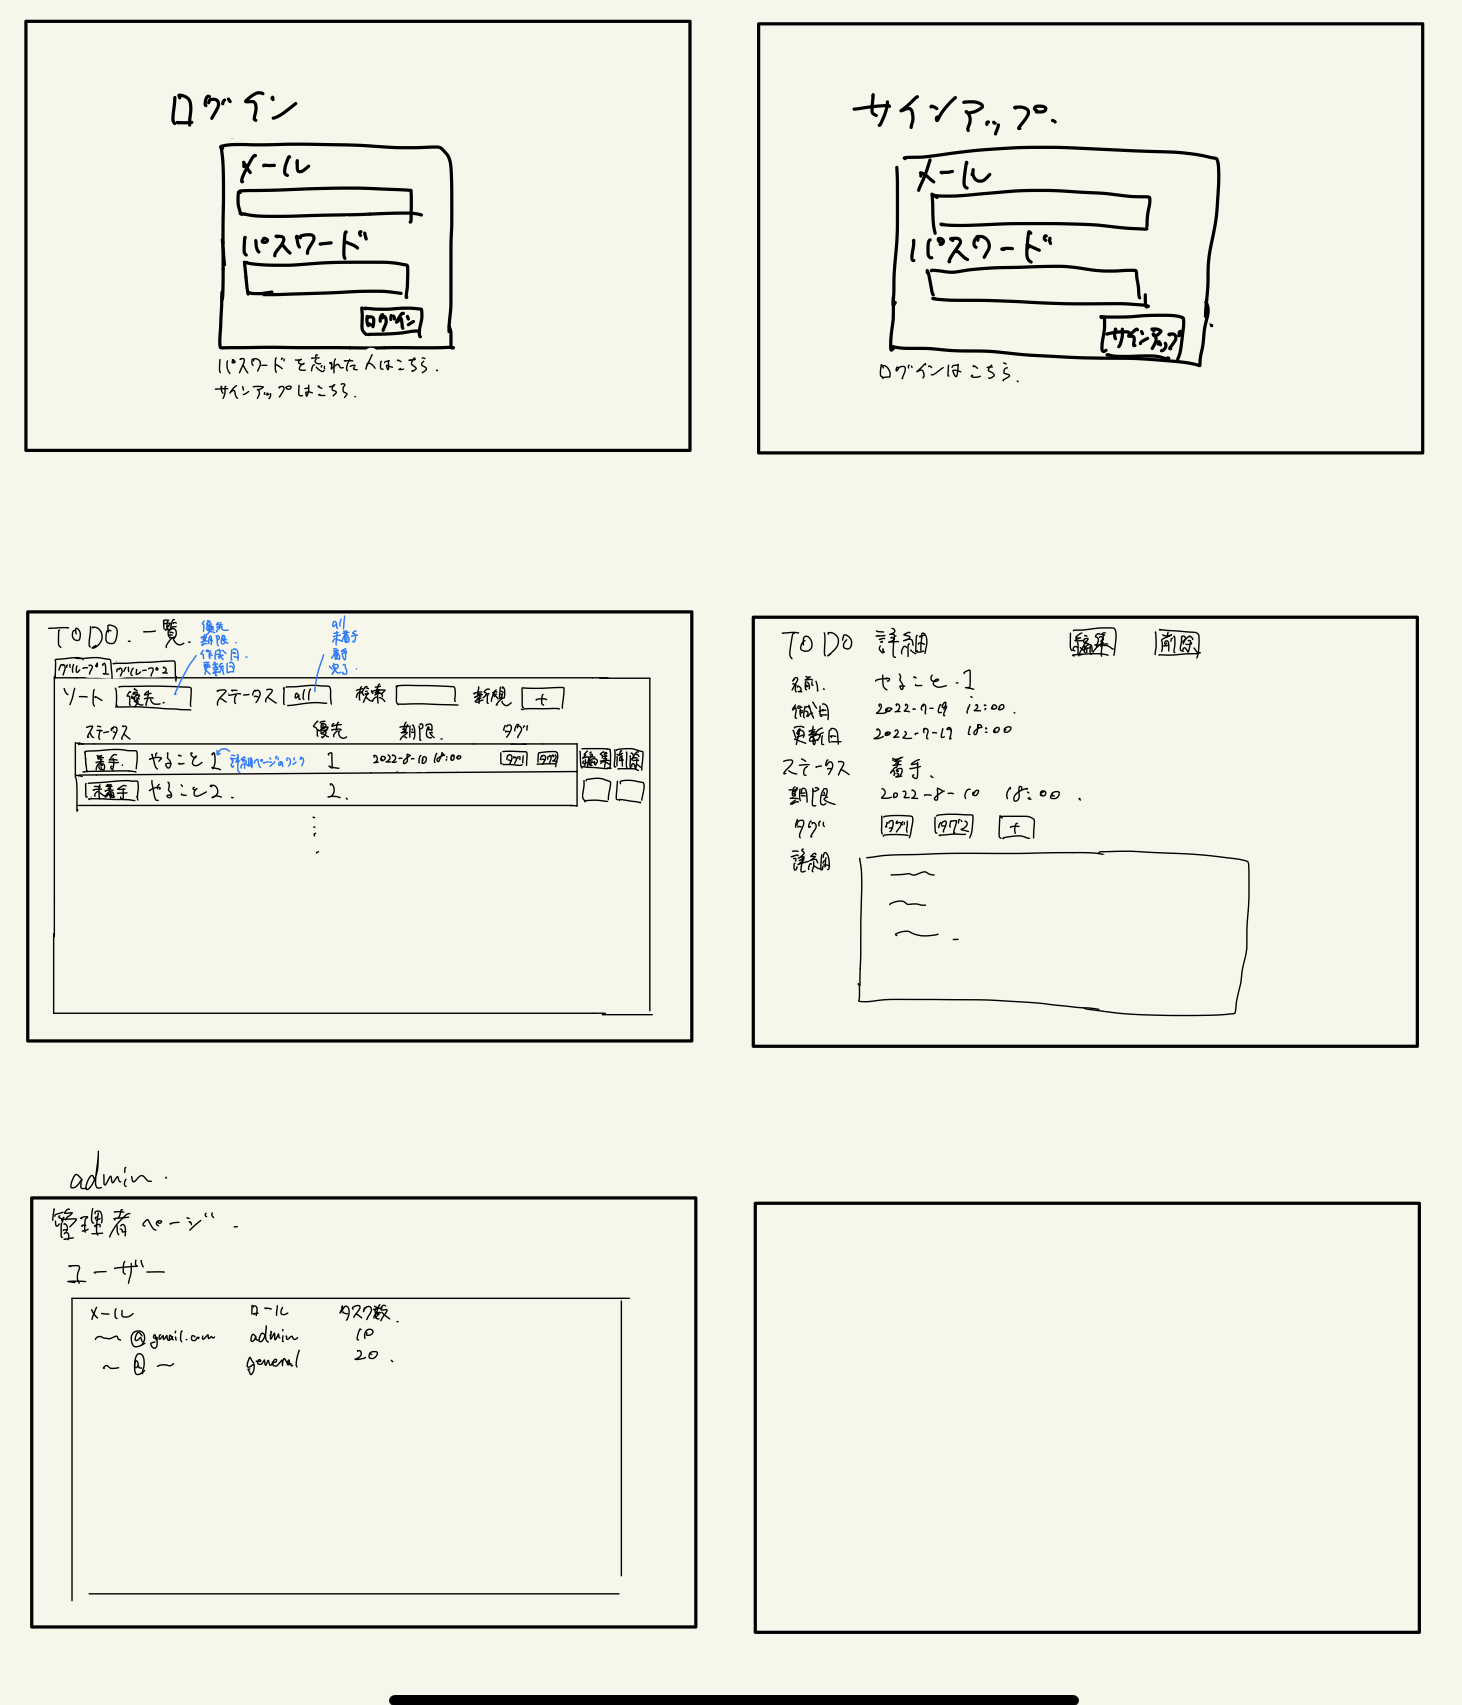 ログイン
メール
パスワード
ログイン
パスワードを忘れた人はこちら.
サインアップはこちら.
サインアップ.
メール
パスワード
サインアップ
ログインはこちら.
TODO.一覧.
優先
期限.
作成日.
更新日
all
未着手
着手
完了.
グループ1 グループ2
ソート 優先. ステータス all 検索 新規 +
ステータス 優先 期限. タグ
着手. やること1 詳細ページのリンク 1 2022-8-10 18:00 タグ1 タグ2 編集 削除
未着手 やること2. 2.
TODO 詳細 編集 削除
名前. やること.1
作成日 2022-7-19 12:00.
更新日 2022-7-19 18:00
ステータス 着手.
期限 2022-8-10 18:00.
タグ タグ1 タグ2 +
詳細
admin.
管理者ページ.
ユーザー
メール ロール タスク数.
~@gmail.com admin 10
~@~ general 20.